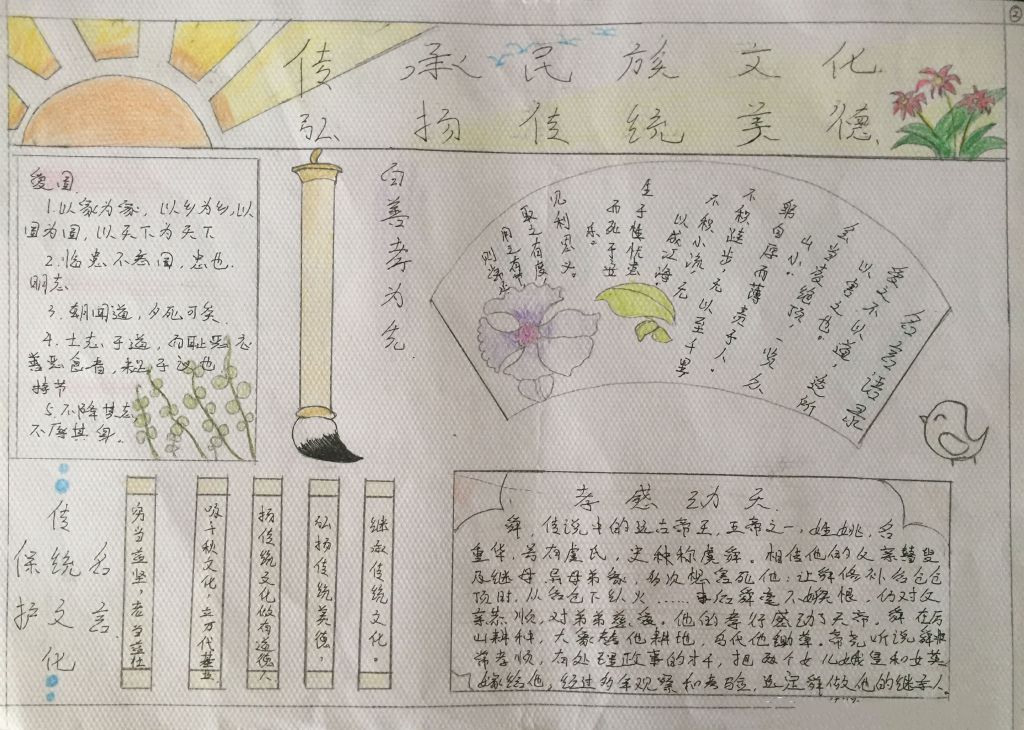 ②
传承民族文化
弘扬传统美德
爱国
1.以家为家，以乡为乡，以
国为国，以天下为天下
2.临患不忘国，忠也.
明志
3.朝闻道，夕死可矣.
4.士志于道，而耻恶衣
恶食者，未足于议也
持节
5.不降其志，
不辱其身。
百善孝为先
名言语录
爱之不以道，适所
以害之也。
会当凌绝顶，一览众
山小。
躬自厚而薄责于人。
不积跬步，无以至千里
不积小流，无
以成江海。
生于忧患
而死于安
乐。
见利思义。
取之有度，
用之有节
则常足
传统文化
保护
名言
穷当益坚，老当益壮
咏千秋文化，立万代基业
扬传统文化做有道德人
弘扬传统美德，
继承传统文化。
孝感动天
舜，传说中的远古帝王，五帝之一，姓姚，名
重华，号有虞氏，史称称虞舜。相传他的父亲瞽叟
及继母、异母弟象，多次想害死他：让舜修补谷仓仓
顶时，从谷仓下纵火……事后舜毫不嫉恨，仍对父
亲恭顺，对弟弟慈爱。他的孝行感动了天帝。舜在历
山耕种，大象替他耕地，鸟代他锄草。帝尧听说舜非
常孝顺，有处理政事的才干，把两个女儿娥皇和女英
嫁给他，经过多年观察和考验，选定舜做他的继承人。